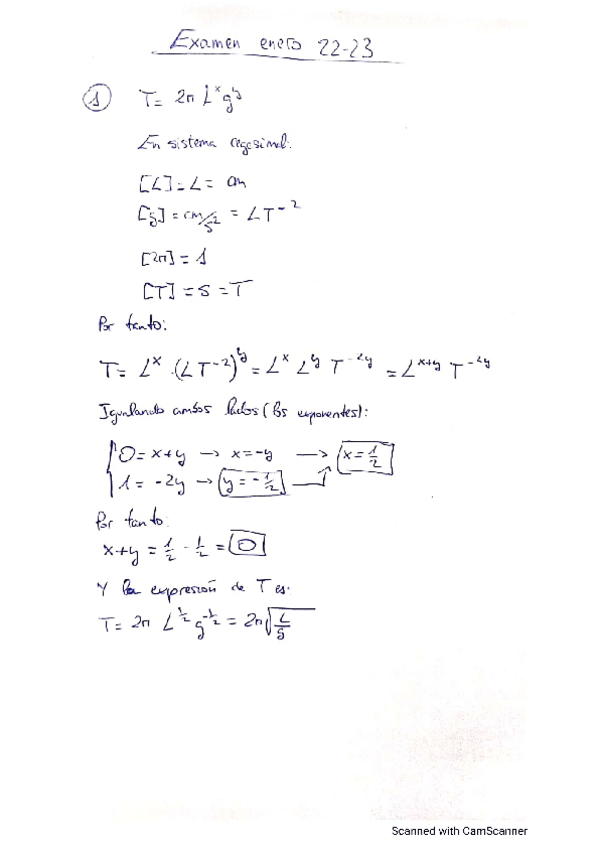 Examen enero 22-23
① T = 2π L^x g^y
En sistema cegesimal:
[L] = L = cm
[g] = cm/s² = LT⁻²
[2π] = 1
[T] = s = T
Por tanto:
T = L^x · (LT⁻²)^y = L^x L^y T^-2y = L^x+y T^-2y
Igualando ambos lados (los exponentes):
0 = x+y → x = -y → x = 1/2
1 = -2y → y = -1/2
Por tanto:
x+y = 1/2 - 1/2 = 0
Y la expresión de T es:
T = 2π L^1/2 g^-1/2 = 2π√(L/g)
Scanned with CamScanner